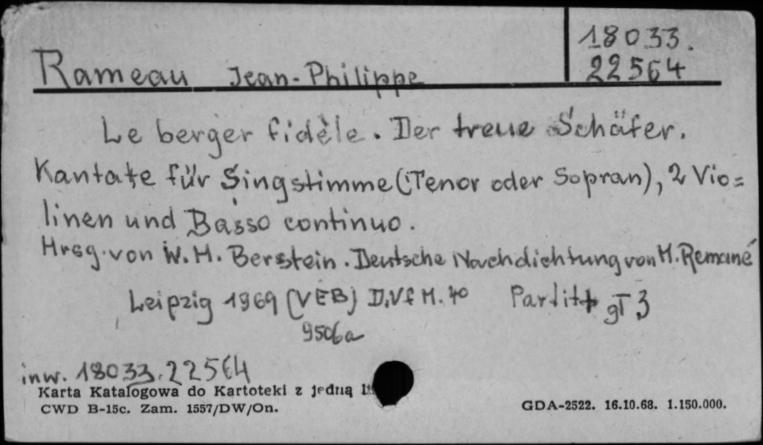 18033.
Rameau Jean-Philippe 22564
Le berger fidèle. Der treue Schäfer.
Kantate für Singstimme (Tenor oder Sopran), 2 Vio=
linen und Basso continuo.
Hrsg. von W. H. Berstein. Deutsche Nachdichtung von M. Remané
Leipzig 1969 (VEB) D.Vf M. 70 Partitt gT 3
9506a
inw. 18033. 22564
Karta Katalogowa do Kartoteki z jedną
CWD B-15c. Zam. 1557/DW/On. GDA-2522. 16.10.68. 1.150.000.